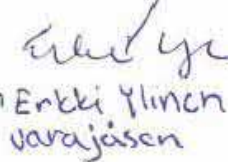 Erkki Ylinen
varajäsen